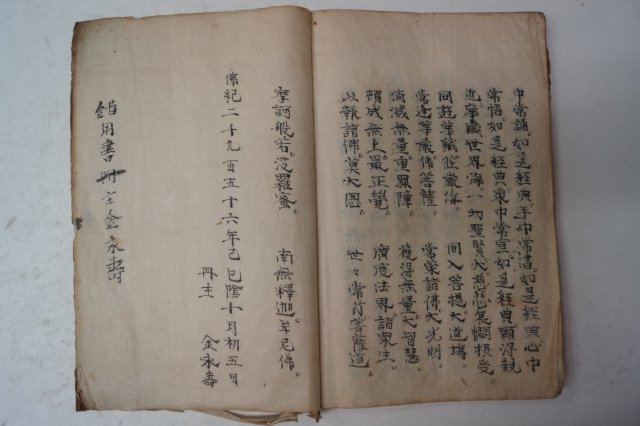 中常誦如是經典。手中常書。如是經典。心中
常悟如是經典。衆中常宣。如是經典願得親
近。華藏世界海。一切聖賢大慈悲哀愍摂受
同遊華藏莊嚴海。同入菩提大道塲
常逢華嚴佛菩薩。常蒙諸佛大光明
消滅無量重罪障。獲得無量大智慧
頓成無上最正覺。廣度法界諸衆生。
以報諸佛莫大恩 世々常行菩薩道
摩訶般若波羅蜜。南無釋迦牟尼佛。
佛紀二千九百五十六年己巳陰十月初五日
冊主 金永壽
用書冊主金永壽